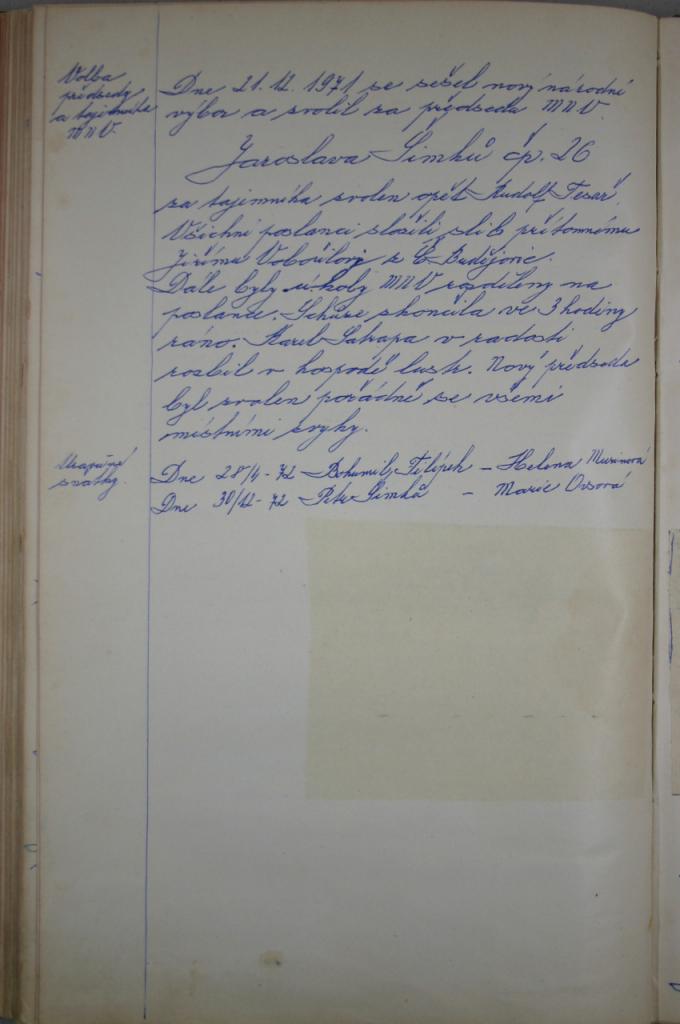 Volba
předsedy
a tajemníka
MNV.
Dne 21.12. 1971 se sešel nový národní
výbor a zvolil za předsedu MNV
Jaroslava Šimků čp. 26
za tajemníka zvolen opět Rudolf Tesař.
Všichni poslanci složili slib přítomnému
Jiřímu Vobořilovi z Č. Budějovic.
Dále byly úkoly MNV rozděleny na
poslance. Schůze skončila ve 3 hodiny
ráno. Karel Satrapa v radosti
rozbil v hospodě lustr. Nový předseda
byl zvolen pořádně se všemi
místními zvyky.
svatby.
Dne 28/4-72 Bohumil Filípek – Helena
Dne 30/12-72 Petr Šimků – Marie